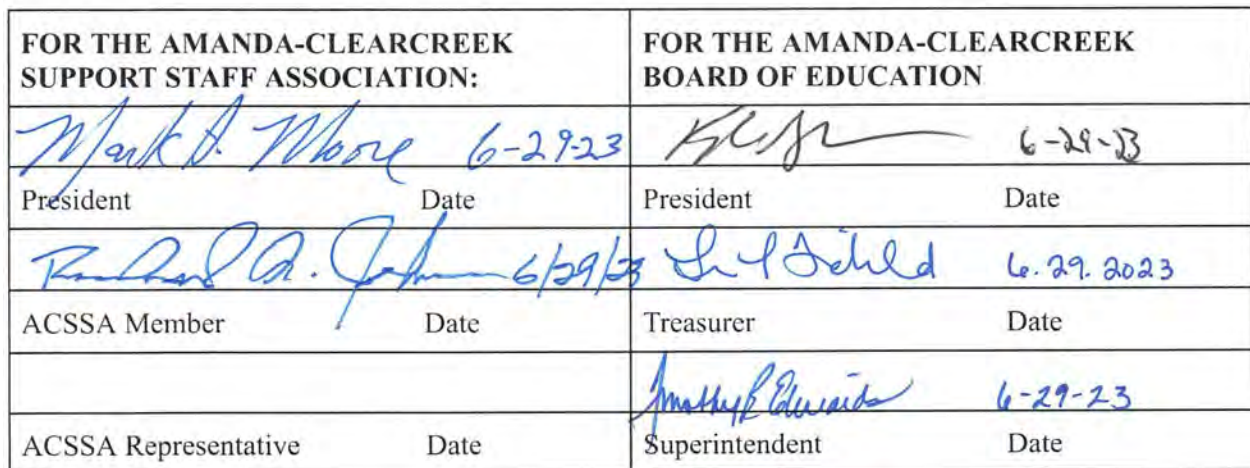 FOR THE AMANDA-CLEARCREEK
SUPPORT STAFF ASSOCIATION:
FOR THE AMANDA-CLEARCREEK
BOARD OF EDUCATION
Mark A. Moore 6-29-23
6-29-23
President Date
President Date
6/29/23
6.29.2023
ACSSA Member Date
Treasurer Date
Timothy R Edwards 6-29-23
ACSSA Representative Date
Superintendent Date